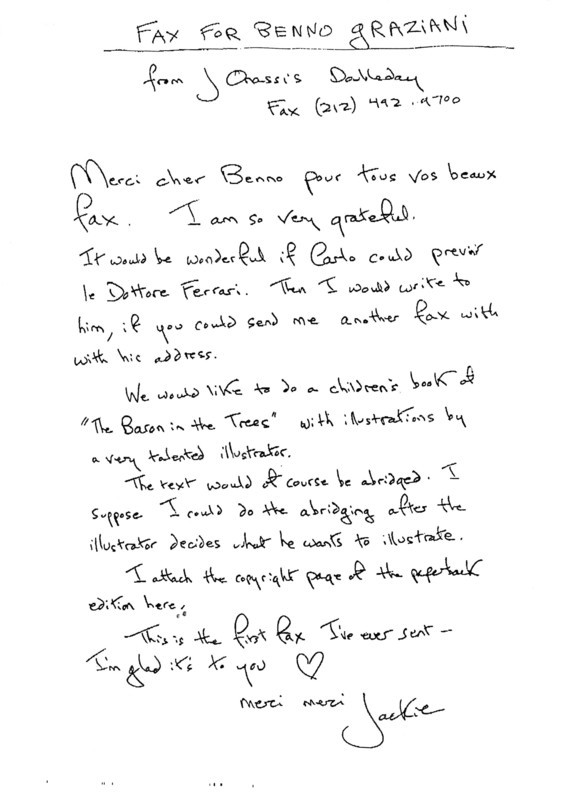 FAX FOR BENNO GRAZIANI
from J Onassis Doubleday
Fax (212) 492.9700
Merci cher Benno pour tous vos beaux
fax. I am so very grateful.
It would be wonderful if Carlo could prevenir
le Dottore Ferrari. Then I would write to
him, if you could send me another fax with
with his address.
We would like to do a children's book of
"The Baron in the Trees" with illustrations by
a very talented illustrator.
The text would of course be abridged. I
suppose I could do the abridging after the
illustrator decides what he wants to illustrate.
I attach the copyright page of the paperback
edition here.
This is the first fax I've ever sent —
I'm glad it's to you ♡
merci merci Jackie